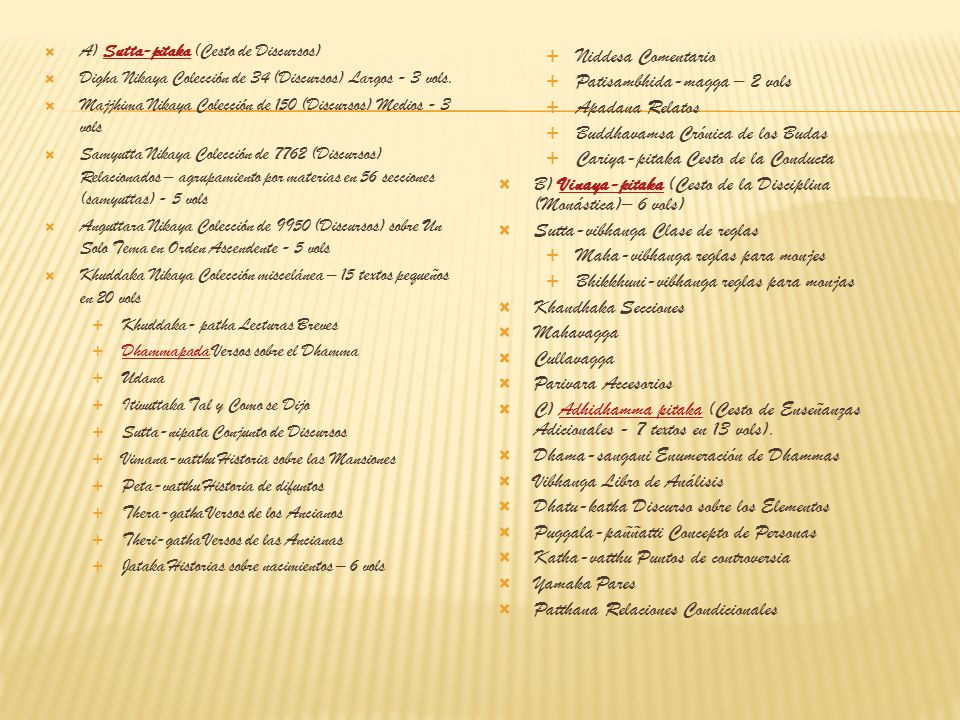 A) Sutta-pitaka (Cesto de Discursos)
Digha Nikaya Colección de 34 (Discursos) Largos - 3 vols.
Majjhima Nikaya Colección de 150 (Discursos) Medios - 3
vols
Samyutta Nikaya Colección de 7762 (Discursos)
Relacionados – agrupamiento por materias en 56 secciones
(samyuttas) - 5 vols
Anguttara Nikaya Colección de 9950 (Discursos) sobre Un
Solo Tema en Orden Ascendente - 5 vols
Khuddaka Nikaya Colección miscelánea – 15 textos pequeños
en 20 vols
Khuddaka- patha Lecturas Breves
Dhammapada Versos sobre el Dhamma
Udana
Itivuttaka Tal y Como se Dijo
Sutta-nipata Conjunto de Discursos
Vimana-vatthu Historia sobre las Mansiones
Peta-vatthu Historia de difuntos
Thera-gatha Versos de los Ancianos
Theri-gatha Versos de las Ancianas
Jataka Historias sobre nacimientos – 6 vols
Niddesa Comentario
Patisambhida-magga – 2 vols
Apadana Relatos
Buddhavamsa Crónica de los Budas
Cariya-pitaka Cesto de la Conducta
B) Vinaya-pitaka (Cesto de la Disciplina
(Monástica)– 6 vols)
Sutta-vibhanga Clase de reglas
Maha-vibhanga reglas para monjes
Bhikkhuni-vibhanga reglas para monjas
Khandhaka Secciones
Mahavagga
Cullavagga
Parivara Accesorios
C) Adhidhamma pitaka (Cesto de Enseñanzas
Adicionales - 7 textos en 13 vols).
Dhama-sangani Enumeración de Dhammas
Vibhanga Libro de Análisis
Dhatu-katha Discurso sobre los Elementos
Puggala-paññatti Concepto de Personas
Katha-vatthu Puntos de controversia
Yamaka Pares
Patthana Relaciones Condicionales